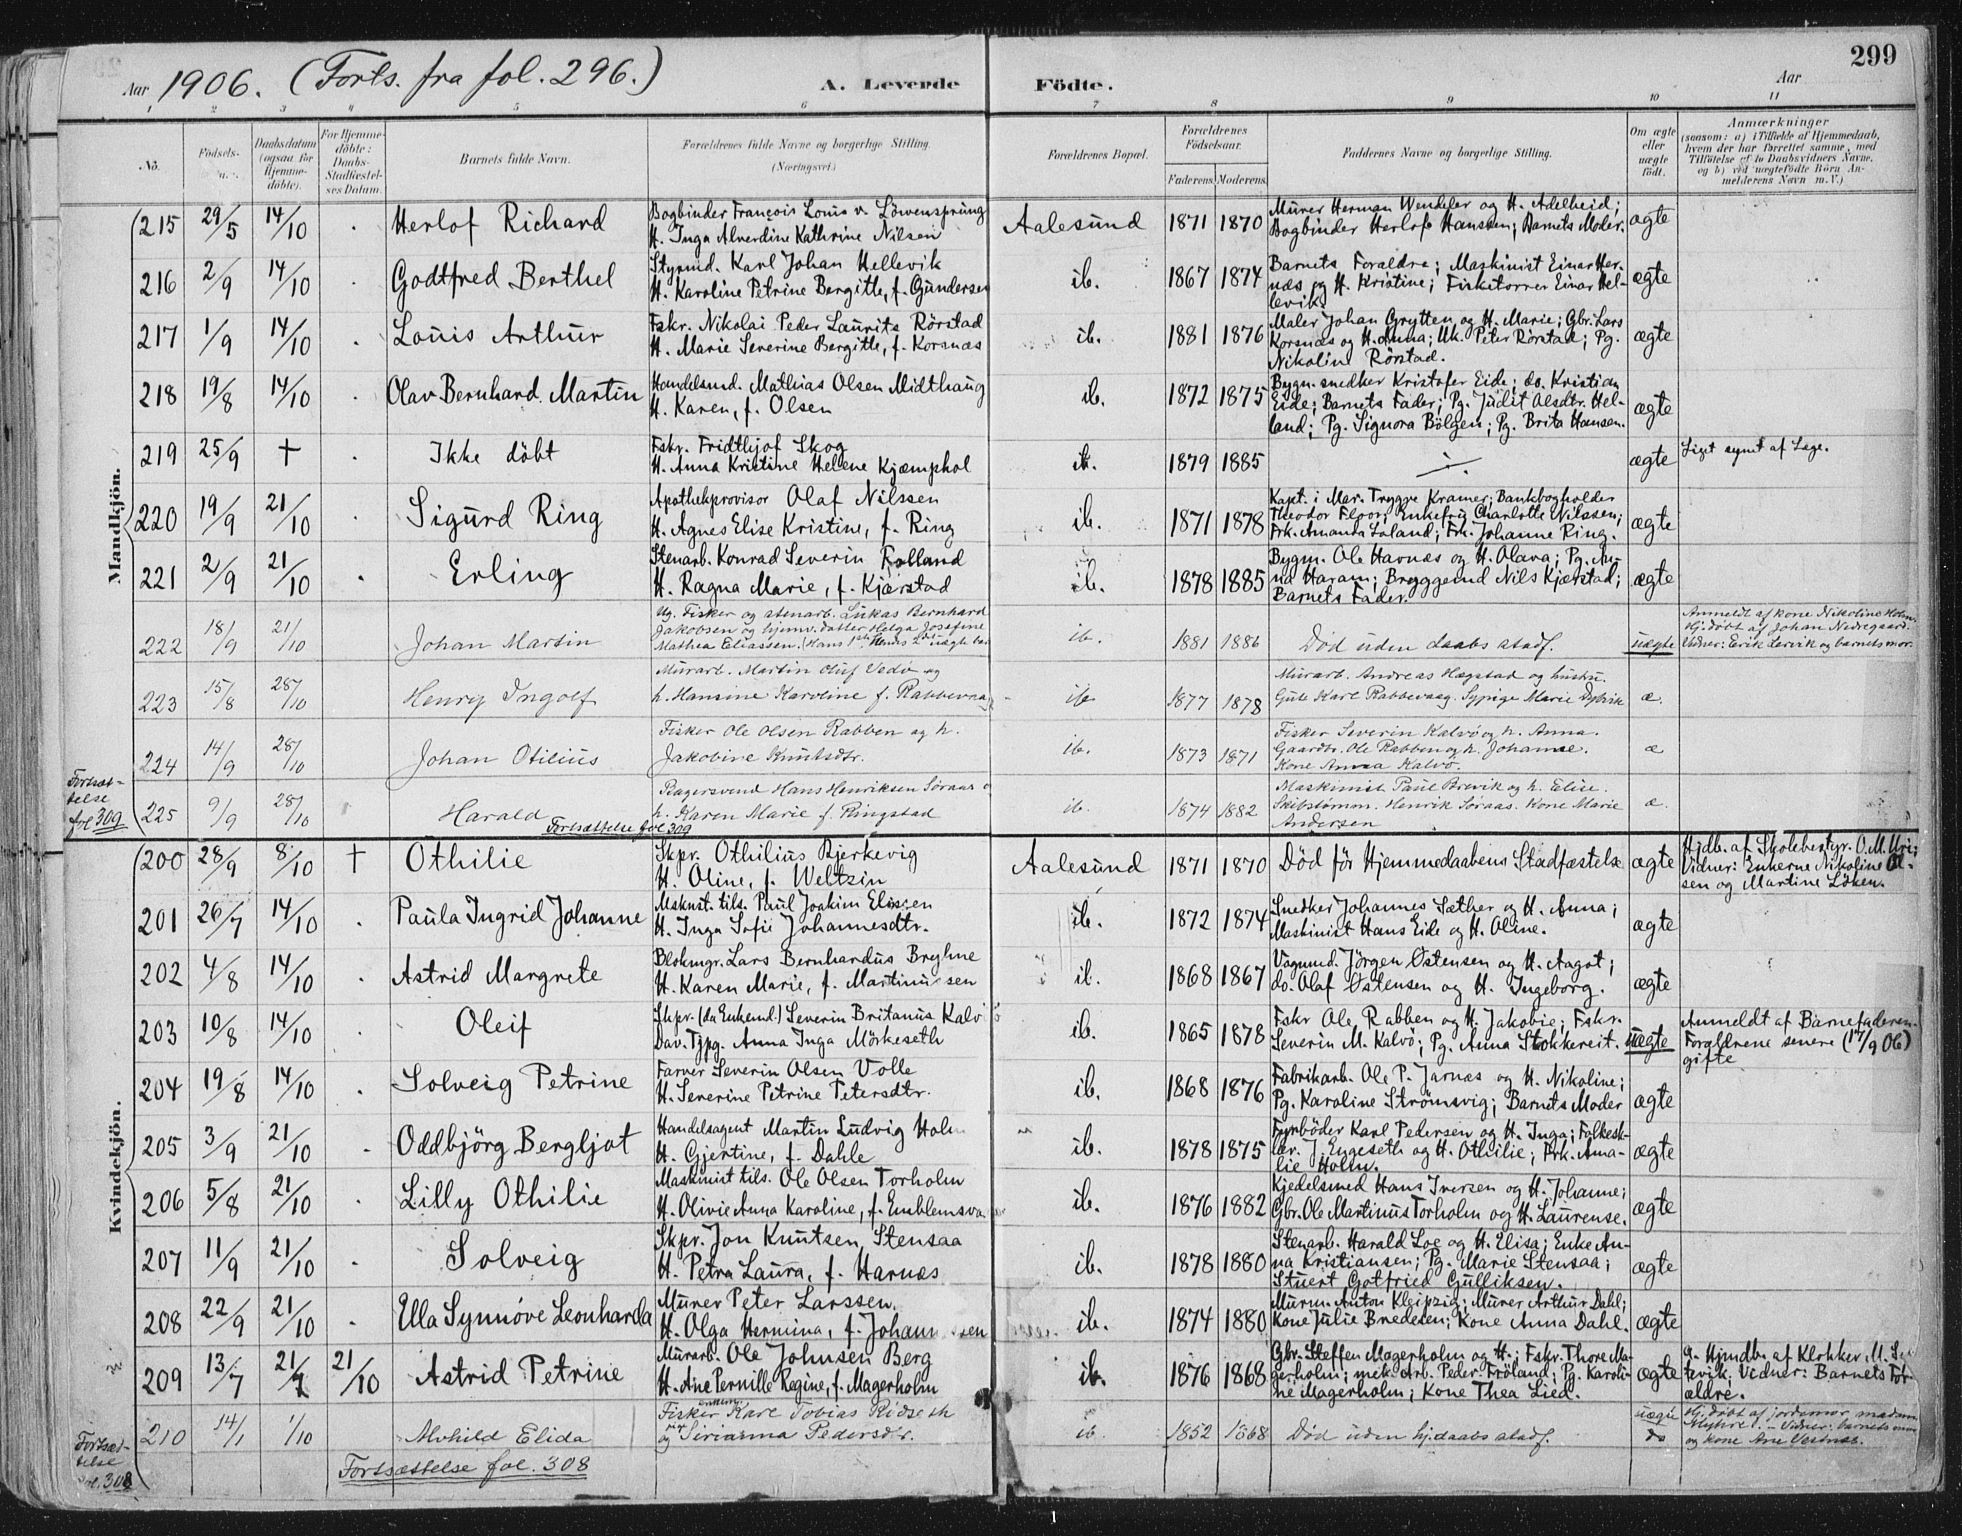 299
Aar 1906. (Forts. fra fol. 296.) A. Levende Födte. Aar
1 2 3 4 5 6 7 8 9 10 11
No. Födsels- Daabsdatum (ogsaa for Hjemmedöbte). For Hjemmedöbte: Daabs-Stadfæstelses Datum. Barnets fulde Navn. Forældrenes fulde Navne og borgerlige Stilling. (Næringsvei.) Forældrenes Bopæl. Forældrenes Födselsaar. Faderens. Moderens. Faddernes Navne og borgerlige Stilling. Om ægte eller uægte født. Anmærkninger (saasom: a) i Tilfælde af Hjemmedaab, hvem der har forrettet samme, med Tilföielse af to Daabsvidners Navne, og b) ved uægtefödte Börn Anmelderens Navn m. V.)
Mandkjön.
215 29/5 14/10 Herlof Richard Bogbinder François Louis v. Löwensprung
H. Inga Alverdine Kathrine Nilsen Aalesund 1871 1870 Murer Herman Wendeler og H. Adelheid;
Bogbinder Herlof Hanssen; Barnets Moder. ægte
216 2/9 14/10 Godtfred Berthel Styrmd. Karl Johan Hellevik
H. Karoline Petrine Bergitte, f. Gundersen ib. 1867 1874 Barnets Forældre; Maskinist Einar Her-
næs og H. Kristine; Fisketorrer Einar Hel-
levik. ægte
217 1/9 14/10 Louis Arthur Fskr. Nikolai Peder Laurits Rörstad
H. Marie Severine Bergitte, f. Korsnæs ib. 1881 1876 Maler Johan Grytten og H. Marie; Gbr. Lars
Korsnæs og H. Anna; Uk. Peter Rörstad; Pg.
Nikoline Rörstad. ægte
218 19/8 14/10 Olav Bernhard Martin Handelsmd. Mathias Olsen Midthaug
H. Karen, f. Olsen ib. 1872 1875 Bygn.snedker Kristofer Eide; do. Kristian
Eide; Barnets Fader; Pg. Judit Alsdtr. Hel-
land; Pg. Signora Bölgen; Pg. Brita Hansen. ægte
219 25/9 + Ikke döbt Fskr. Fridthjof Skog
H. Anna Kristine Helene Kjæmphol ib. 1879 1885 ægte Liget synet af Læge.
220 19/9 21/10 Sigurd Ring Apothekprovisor Olaf Nilssen
H. Agnes Elise Kristine, f. Ring ib. 1871 1878 Kapt. i Mar. Trygve Kramer; Bankbogholder
Theodor Floor; Enkefru Charlotte Nilssen;
Frk. Amanda Loland; Frk. Johanne Ring. ægte
221 2/9 21/10 Erling Stenarb. Konrad Severin Folland
H. Ragna Marie, f. Kjærstad ib. 1878 1885 Bygm. Ole Havnæs og H. Olava; Pg. An-
na Haram; Bryggemd Nils Kjærstad;
Barnets Fader. ægte
222 18/9 21/10 Johan Martin Ug. Fisker og stenarb. Lukas Bernhard
Jakobsen og hjemv. datter Helga Josefine
Mathea Eliassen. (Hans 1ste, Hendes 2det uægte ba ib. 1881 1886 Död uden daabs stadf. uægte Anmeldt af kone Nikoline Holm.
Hj. döbt af Johan Nedregaard.
Vidner: Erik Lervik og barnets mor.
223 15/8 28/10 Henry Ingolf Murarb. Martin Oluf Vedö og
h. Hansine Karoline f. Rabbevaag ib 1877 1878 Murarb. Andreas Hægstad og hustru.
Gut Karl Rabbevaag. Sypige Marie Dybvik æ.
224 14/9 28/10 Johan Otilius Fisker Ole Olsen Rabben og h.
Jakobine Knutsdtr. ib. 1873 1871 Fisker Severin Kalvö og h. Anna.
Gaardbr. Ole Rabben og h. Johanne.
Kone Anna Kalvö. æ
Fortsæt-
telse
fol 309
225 9/9 28/10 Harald Bagersvend Hans Henriksen Soraas o
h. Karen Marie f. Ringstad ib. 1874 1882 Maskinist Paul Brevik og h. Elise.
Skibstömm. Henrik Soraas. Kone Marie
Andersen æ.
Fortsættelse fol 309
Kvindekjön.
200 28/9 8/10 + Othilie Skpr. Othilius Bjerkevig
H. Oline, f. Weltzin Aalesund 1871 1870 Död för Hjemmedaabens Stadfæstelse ægte Hjdb. af Skolebestyr. O. M. Uri;
Vidner: Enkerne Nikoline Ol-
sen og Martine Löken.
201 26/7 14/10 Paula Ingrid Johanne Msknst. tils. Paul Joakim Elissen
H. Inga Sofie Johannesdtr. ib. 1872 1874 Snedker Johannes Sæther og H. Anna;
Maskinist Hans Eide og H. Oline. ægte
202 4/8 14/10 Astrid Margrete Blokmgr. Lars Bernhardus Bryhne
H. Karen Marie, f. Martinussen ib. 1868 1867 Vognmd. Jörgen Ostensen og H. Aagot;
do. Olaf Ostensen og H. Ingeborg. ægte
203 10/8 14/10 Oleif Skpr. (da Enkemd.) Severin Britanus Kalvö
Dav. Tjpg. Anna Inga Mörkeseth ib. 1865 1878 Fskr Ole Rabben og H. Jakobie; Fskr.
Severin M. Kalvö; Pg. Anna Stokkereit. uægte Anmeldt af Barnefaderen.
Forældrene senere (17/9 06)
gifte
204 19/8 14/10 Solveig Petrine Farver Severin Olsen Volle
H. Severine Petrine Petersdtr. ib. 1868 1876 Fabrikarb. Ole P. Jarnæs og H. Nikoline;
Pg. Karoline Strömsvig; Barnets Moder ægte
205 3/9 21/10 Oddbjörg Bergljot Handelsagent Martin Ludvig Holm
H. Gjertine, f. Dahle ib. 1878 1875 Fyrböder Karl Pedersen og H. Inga; Folkesk-
lær. J. Engeseth og H. Othilie; Frk. Ama-
lie Holm. ægte
206 5/8 21/10 Lilly Othilie Maskinist tils. Ole Olsen Torholm
H. Olivie Anna Karoline, f. Emblemsva ib. 1876 1882 Kjedelsmed Hans Iversen og H. Johanne;
Gbr. Ole Martinus Torholm og H. Laurense. ægte
207 11/9 21/10 Solveig Skpr. Jon Knutsen Stensaa
H. Petra Laura, f. Harnæs ib. 1878 1880 Stenarb. Harald Loe og H. Elisa; Enke An-
na Kristiansen; Pg. Marie Stensaa;
Stuert Gotfried Gulliksen. ægte
208 22/9 21/10 Ella Synnöve Leonharda Murer Peter Larssen.
H. Olga Hermina, f. Johannessen ib. 1874 1880 Murm. Anton Kleipzig; Murer Arthur Dahl;
Kone Julie Bredesen; Kone Anna Dahl. ægte
209 13/7 21/7 21/10 Astrid Petrine Murarb. Ole Johnsen Berg
H. Ane Pernille Regine, f. Magerholm ib. 1876 1868 Gbr. Steffen Magerholm og H.; Fskr. Thore Ma-
gerholm; mek. Arb. Peder Fröland; Pg. Karoli-
ne Magerholm; Kone Thea Lied. ægte Hjmdb. af Klokker M. Se
tevik; Vidner: Barnets For-
ældre.
210 14/1 1/10 Alvhild Elida Fisker enkem. Karl Tobias Ridseth
og pige Sirianna Pedersdtr. ib 1852 1868 Död uden hjdaabs stadf. uægte
do Hj. döbt af jordemor madam
Myhre. Vidner: barnets mor
og kone Ane Vestnes.
Fortsæt-
telse
fol. 308
Fortsættelse fol. 308